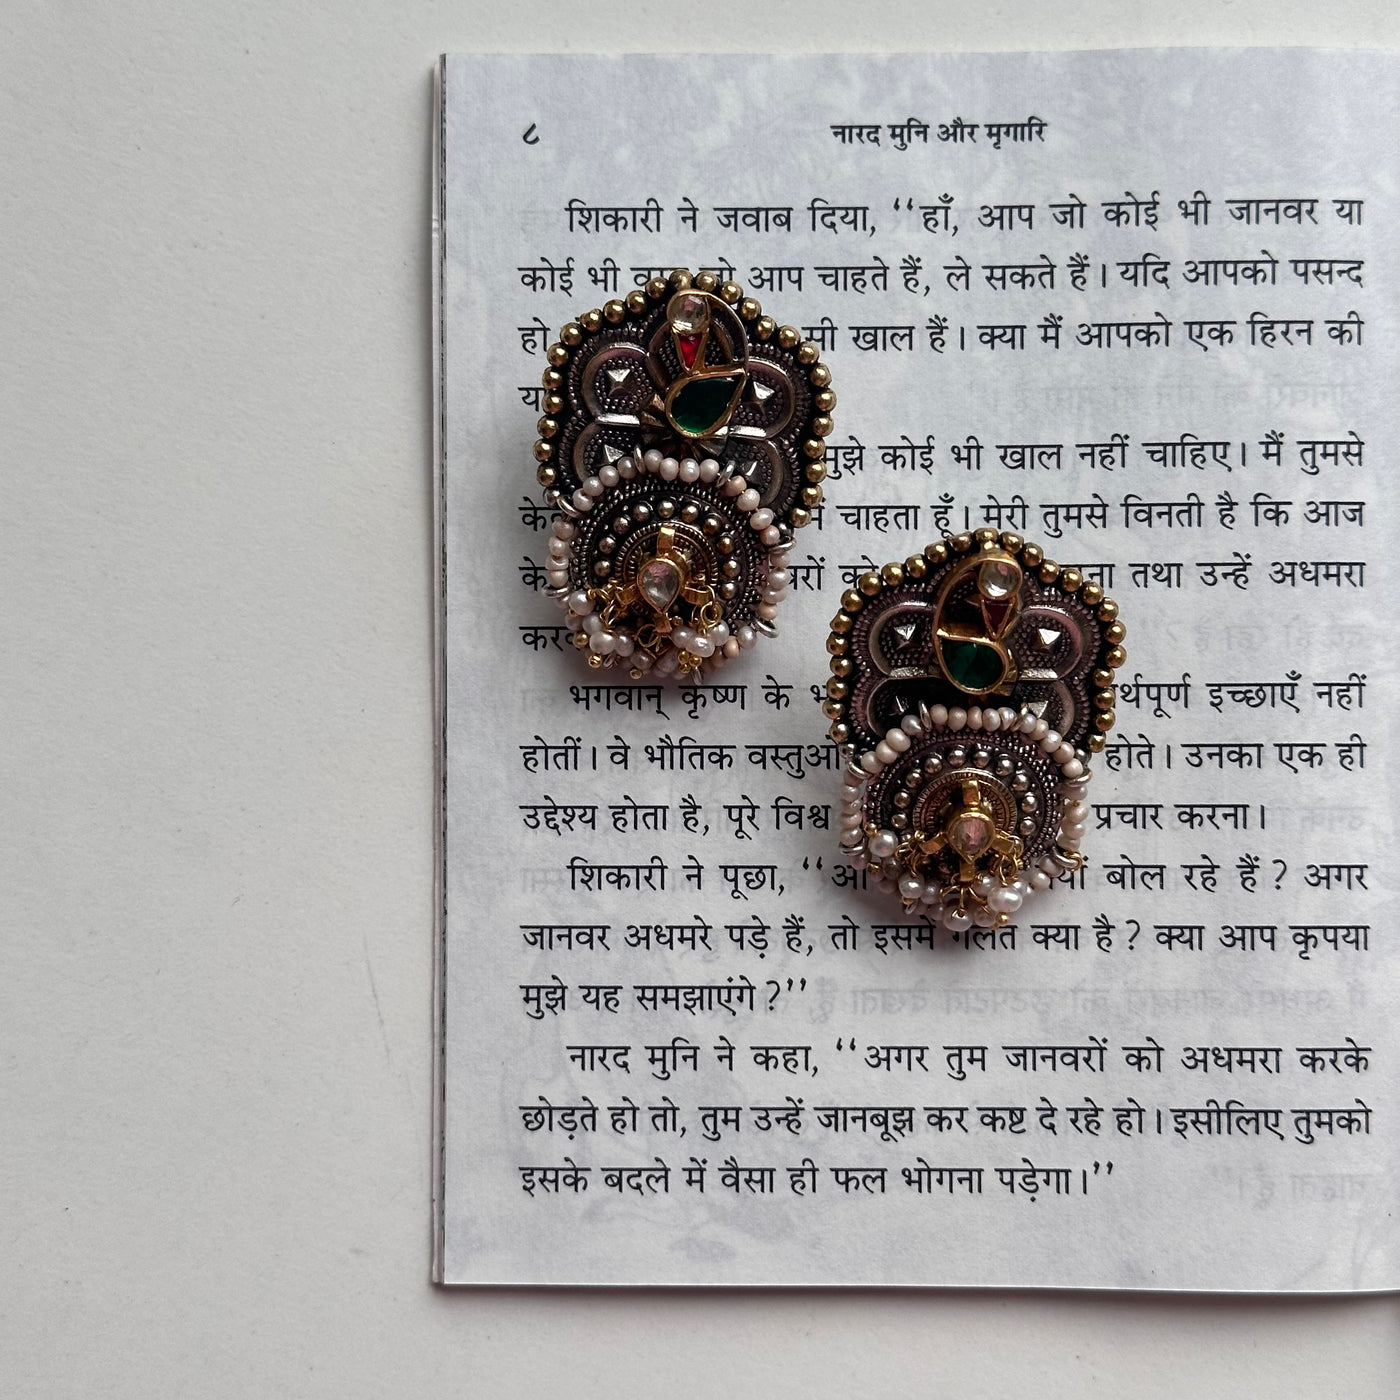 ८
नारद मुनि और मृगारि
शिकारी ने जवाब दिया, ‘‘हाँ, आप जो कोई भी जानवर या
कोई भी आप चाहते हैं, ले सकते हैं। यदि आपको पसन्द
हो खाल हैं। क्या मैं आपको एक हिरन की
मुझे कोई भी खाल नहीं चाहिए। मैं तुमसे
चाहता हूँ। मेरी तुमसे विनती है कि आज
तथा उन्हें अधमरा
भगवान् कृष्ण के इच्छाएँ नहीं
होतीं। वे भौतिक होते। उनका एक ही
उद्देश्य होता है, पूरे विश्व प्रचार करना।
शिकारी ने पूछा, बोल रहे हैं? अगर
जानवर अधमरे पड़े हैं, तो इसमें गलत क्या है? क्या आप कृपया
मुझे यह समझाएंगे?’’
नारद मुनि ने कहा, ‘‘अगर तुम जानवरों को अधमरा करके
छोड़ते हो तो, तुम उन्हें जानबूझ कर कष्ट दे रहे हो। इसीलिए तुमको
इसके बदले में वैसा ही फल भोगना पड़ेगा।’’